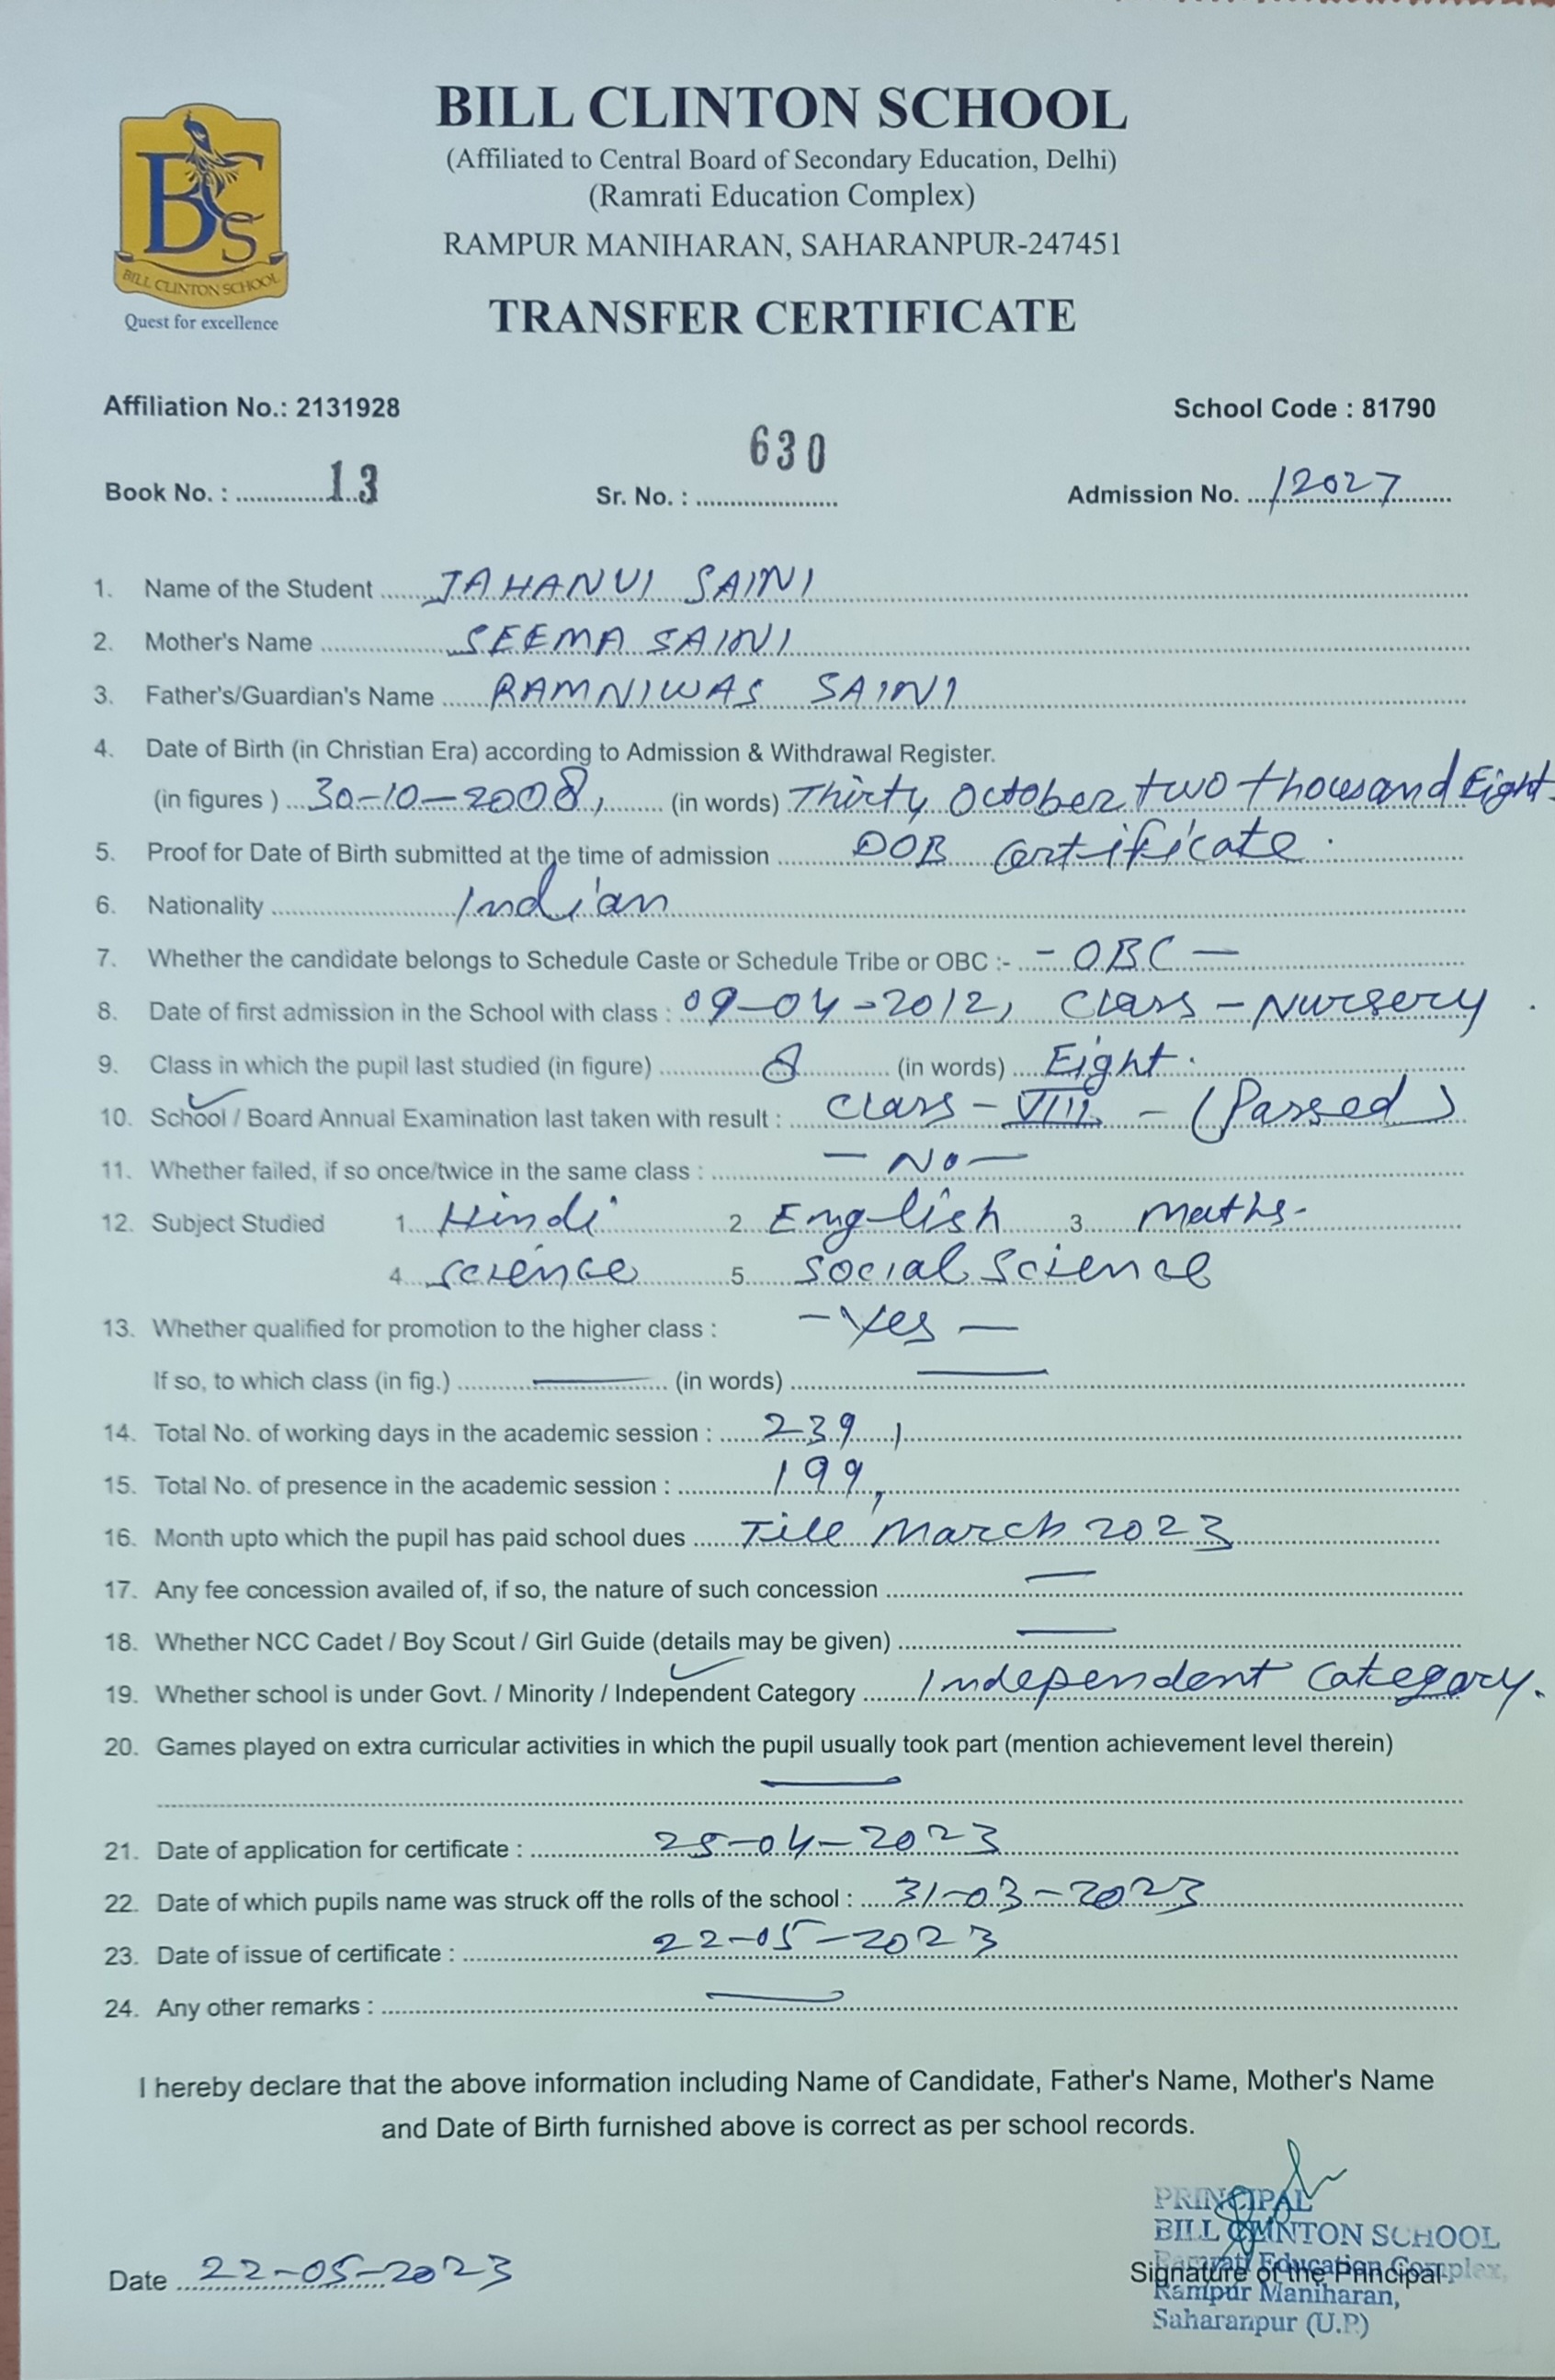 BILL CLINTON SCHOOL
(Affiliated to Central Board of Secondary Education, Delhi)
(Ramrati Education Complex)
RAMPUR MANIHARAN, SAHARANPUR-247451
BCS
BILL CLINTON SCHOOL
Quest for excellence
TRANSFER CERTIFICATE
Affiliation No.: 2131928 School Code : 81790
Book No. : 13 Sr. No. : 630 Admission No. 12027
1. Name of the Student JAHANVI SAINI
2. Mother's Name SEEMA SAINI
3. Father's/Guardian's Name RAMNIWAS SAINI
4. Date of Birth (in Christian Era) according to Admission & Withdrawal Register.
(in figures ) 30-10-2008, (in words) Thirty October two thousand Eight.
5. Proof for Date of Birth submitted at the time of admission DOB Certificate.
6. Nationality Indian
7. Whether the candidate belongs to Schedule Caste or Schedule Tribe or OBC :- - OBC -
8. Date of first admission in the School with class : 09-04-2012, Class - Nursery.
9. Class in which the pupil last studied (in figure) 8 (in words) Eight.
10. School / Board Annual Examination last taken with result : Class - VIII - (Passed)
11. Whether failed, if so once/twice in the same class : - No -
12. Subject Studied 1. Hindi 2. English 3. Maths.
4. Science 5. Social Science
13. Whether qualified for promotion to the higher class : - Yes -
If so, to which class (in fig.) — (in words) —
14. Total No. of working days in the academic session : 239,
15. Total No. of presence in the academic session : 199,
16. Month upto which the pupil has paid school dues Till March 2023
17. Any fee concession availed of, if so, the nature of such concession —
18. Whether NCC Cadet / Boy Scout / Girl Guide (details may be given) —
19. Whether school is under Govt. / Minority / Independent Category Independent Category.
20. Games played on extra curricular activities in which the pupil usually took part (mention achievement level therein)
—
21. Date of application for certificate : 25-04-2023
22. Date of which pupils name was struck off the rolls of the school : 31-03-2023
23. Date of issue of certificate : 22-05-2023
24. Any other remarks : —
I hereby declare that the above information including Name of Candidate, Father's Name, Mother's Name
and Date of Birth furnished above is correct as per school records.
PRINCIPAL
BILL CLINTON SCHOOL
Ramrati Education Complex,
Date 22-05-2023 Signature of the Principal
Rampur Maniharan,
Saharanpur (U.P.)